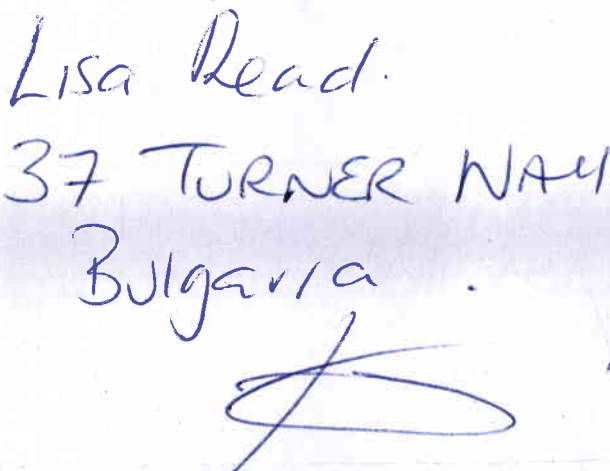 Lisa Read.
37 TURNER WAY
Bulgaria.